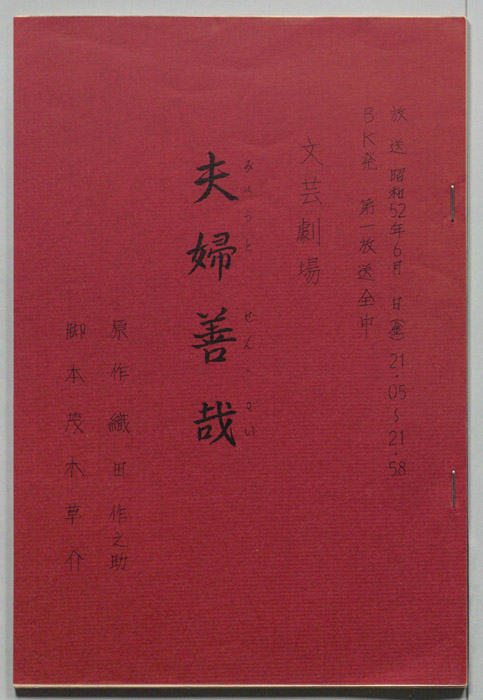 放送 昭和52年6月 日㊎ 21.05~21.58
BK発 第一放送全中
文芸劇場
夫婦善哉
めうと ぜんざい
原作 織田作之助
脚本 茂木草介